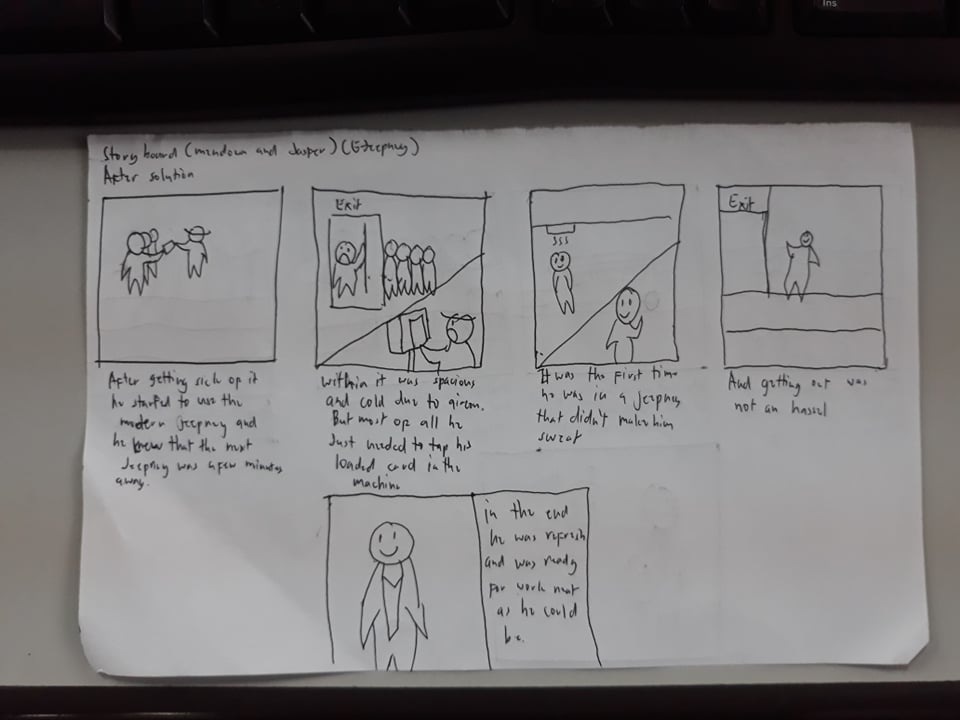 Story board (mindown and Jasper) (E-Jeepney)
After solution
Exit
Exit
After getting sick of it
he started to use the
modern Jeepney and
he knew that the next
Jeepney was a few minutes
away.
within it was spacious
and cold due to aircon.
But most of all he
Just needed to tap his
loaded card in the
machine
It was the first time
he was in a jeepney
that didn't make him
sweat
And getting out was
not an hassel
in the end
he was refresh
and was ready
for work neat
as he could
be.
Ins